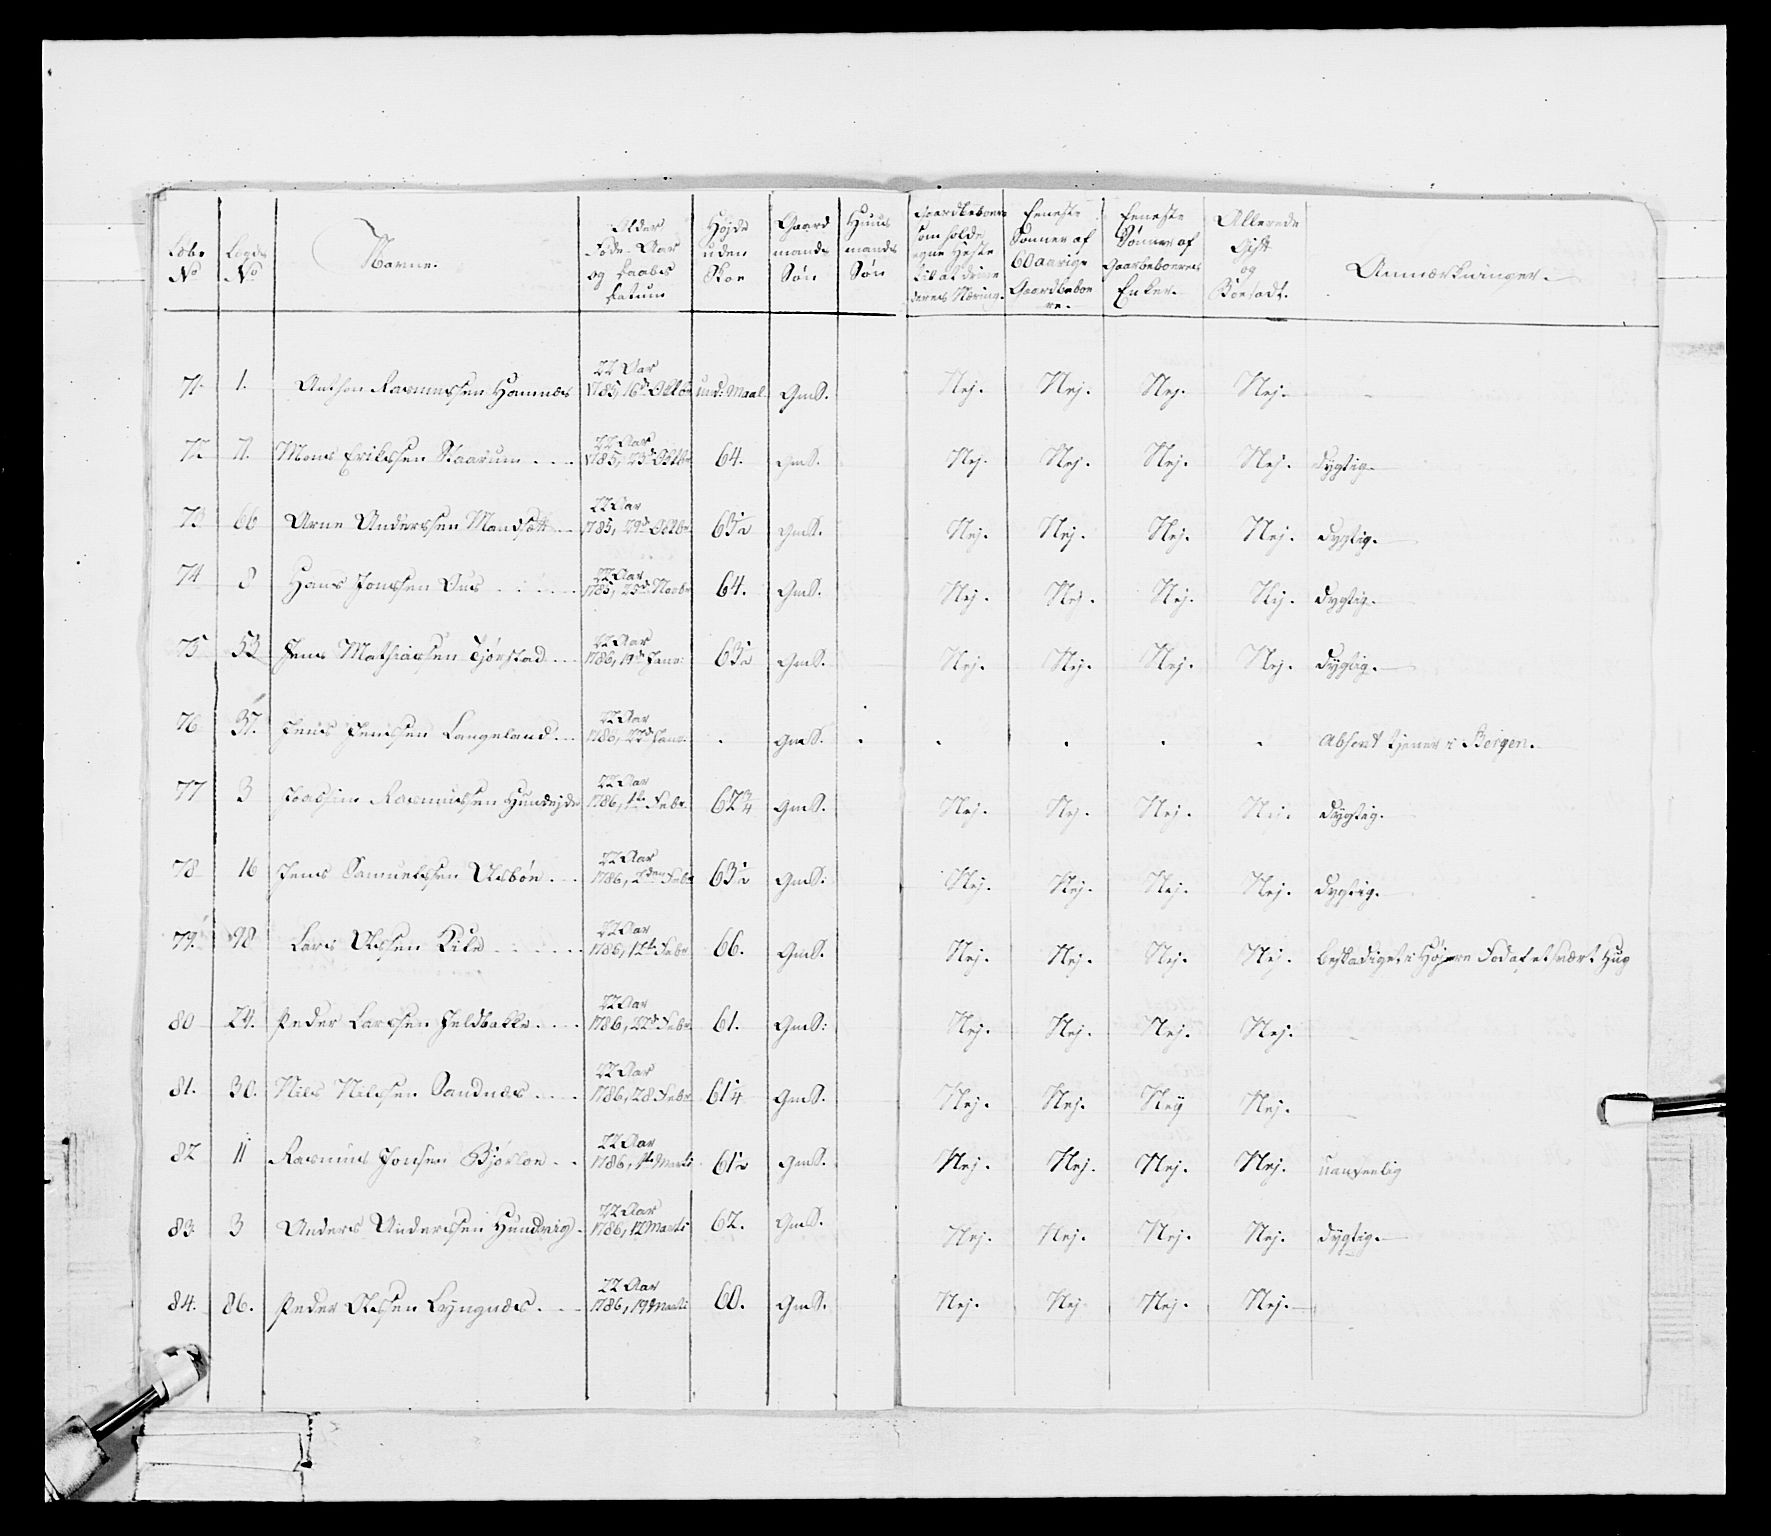 Løbe No | Lægds No | Navne. | Alder Føde-Aar og Daabs Datum | Højde uden Skoe | Gaard mands Søn | Huus mands Søn | Gaardbeboere som holde egne Heste til at drive deres Næring. | Eeneste Sønner af 60 aarige Gaardbeboere. | Eeneste Sønner af Gaardbeboeres Enker. | Allerede Gift og Boesadt. | Anmærkninger.
71. | 1. | Anthon Rasmussen Hamnæs | 22 Aar 1785, 16de Octbr | und: Maal | GmS. | Nej. | Nej. | Nej. | Nej.
72 | 71. | Mons Erikssen Staarum | 22 Aar 1785, 23de Octbr | 64. | GmS. | Nej. | Nej. | Nej. | Nej. | Dygtig.
73 | 66 | Arne Anderssen | 22 Aar 1785, 29de Octbr | 63½ | GmS. | Nej. | Nej. | Nej. | Nej. | Dygtig.
74 | 8 | Hans Jonssen Øus | 22 Aar 1785, 25de Novbr | 64. | GmS. | Nej. | Nej. | Nej. | Nej. | Dygtig.
75 | 53 | Jens Mathiassen Tjørstad | 22 Aar 1786, 19de Janv: | 63½ | GmS. | Nej. | Nej. | Nej. | Nej. | Dygtig.
76 | 37. | Jens Jenssen Langeland | 22 Aar 1786, 22de Janv. | . | GmS. | . | . | . | . | . | Absent tjener i Bergen.
77 | 3 | Joachim Rasmussen Hundejde | 22 Aar 1786, 1ste Febr. | 62¾ | GmS. | Nej. | Nej. | Nej. | Nej. | Dygtig.
78 | 16 | Jens Samuelssen | 22 Aar 1786, 2den Febr | 63½ | GmS: | Nej. | Nej. | Nej. | Nej. | Dygtig.
79. | 98 | Lars Olssen Kile | 22 Aar 1786, 12te Febr. | 66. | GmS. | Nej. | Nej. | Nej. | Nej. | beskadiget i Højere Fod af et svært Hug
80 | 24. | Peder Larssen Feldbakke | 22 Aar 1786, 22de Febr | 61. | GmS: | Nej. | Nej. | Nej. | Nej.
81. | 30. | Nils Nilssen Sandnæs | 22 Aar 1786, 28 Febr | 61¼ | GmS. | Nej. | Nej. | Nej | Nej.
82 | 11 | Rasmus Jonsen Bjørloe | 22 Aar 1786, 1ste Marti | 61½ | GmS. | Nej. | Nej. | Nej. | Nej. | uanseelig
83. | 3 | Anders Anderssen Hundvig | 22 Aar 1786, 12 Marti | 62. | GmS. | Nej. | Nej. | Nej. | Nej. | Dygtig.
84. | 86. | Peder Olssen Lyngnæs | 22 Aar 1786, 19 Marti | 60. | GmS. | Nej. | Nej | Nej. | Nej.